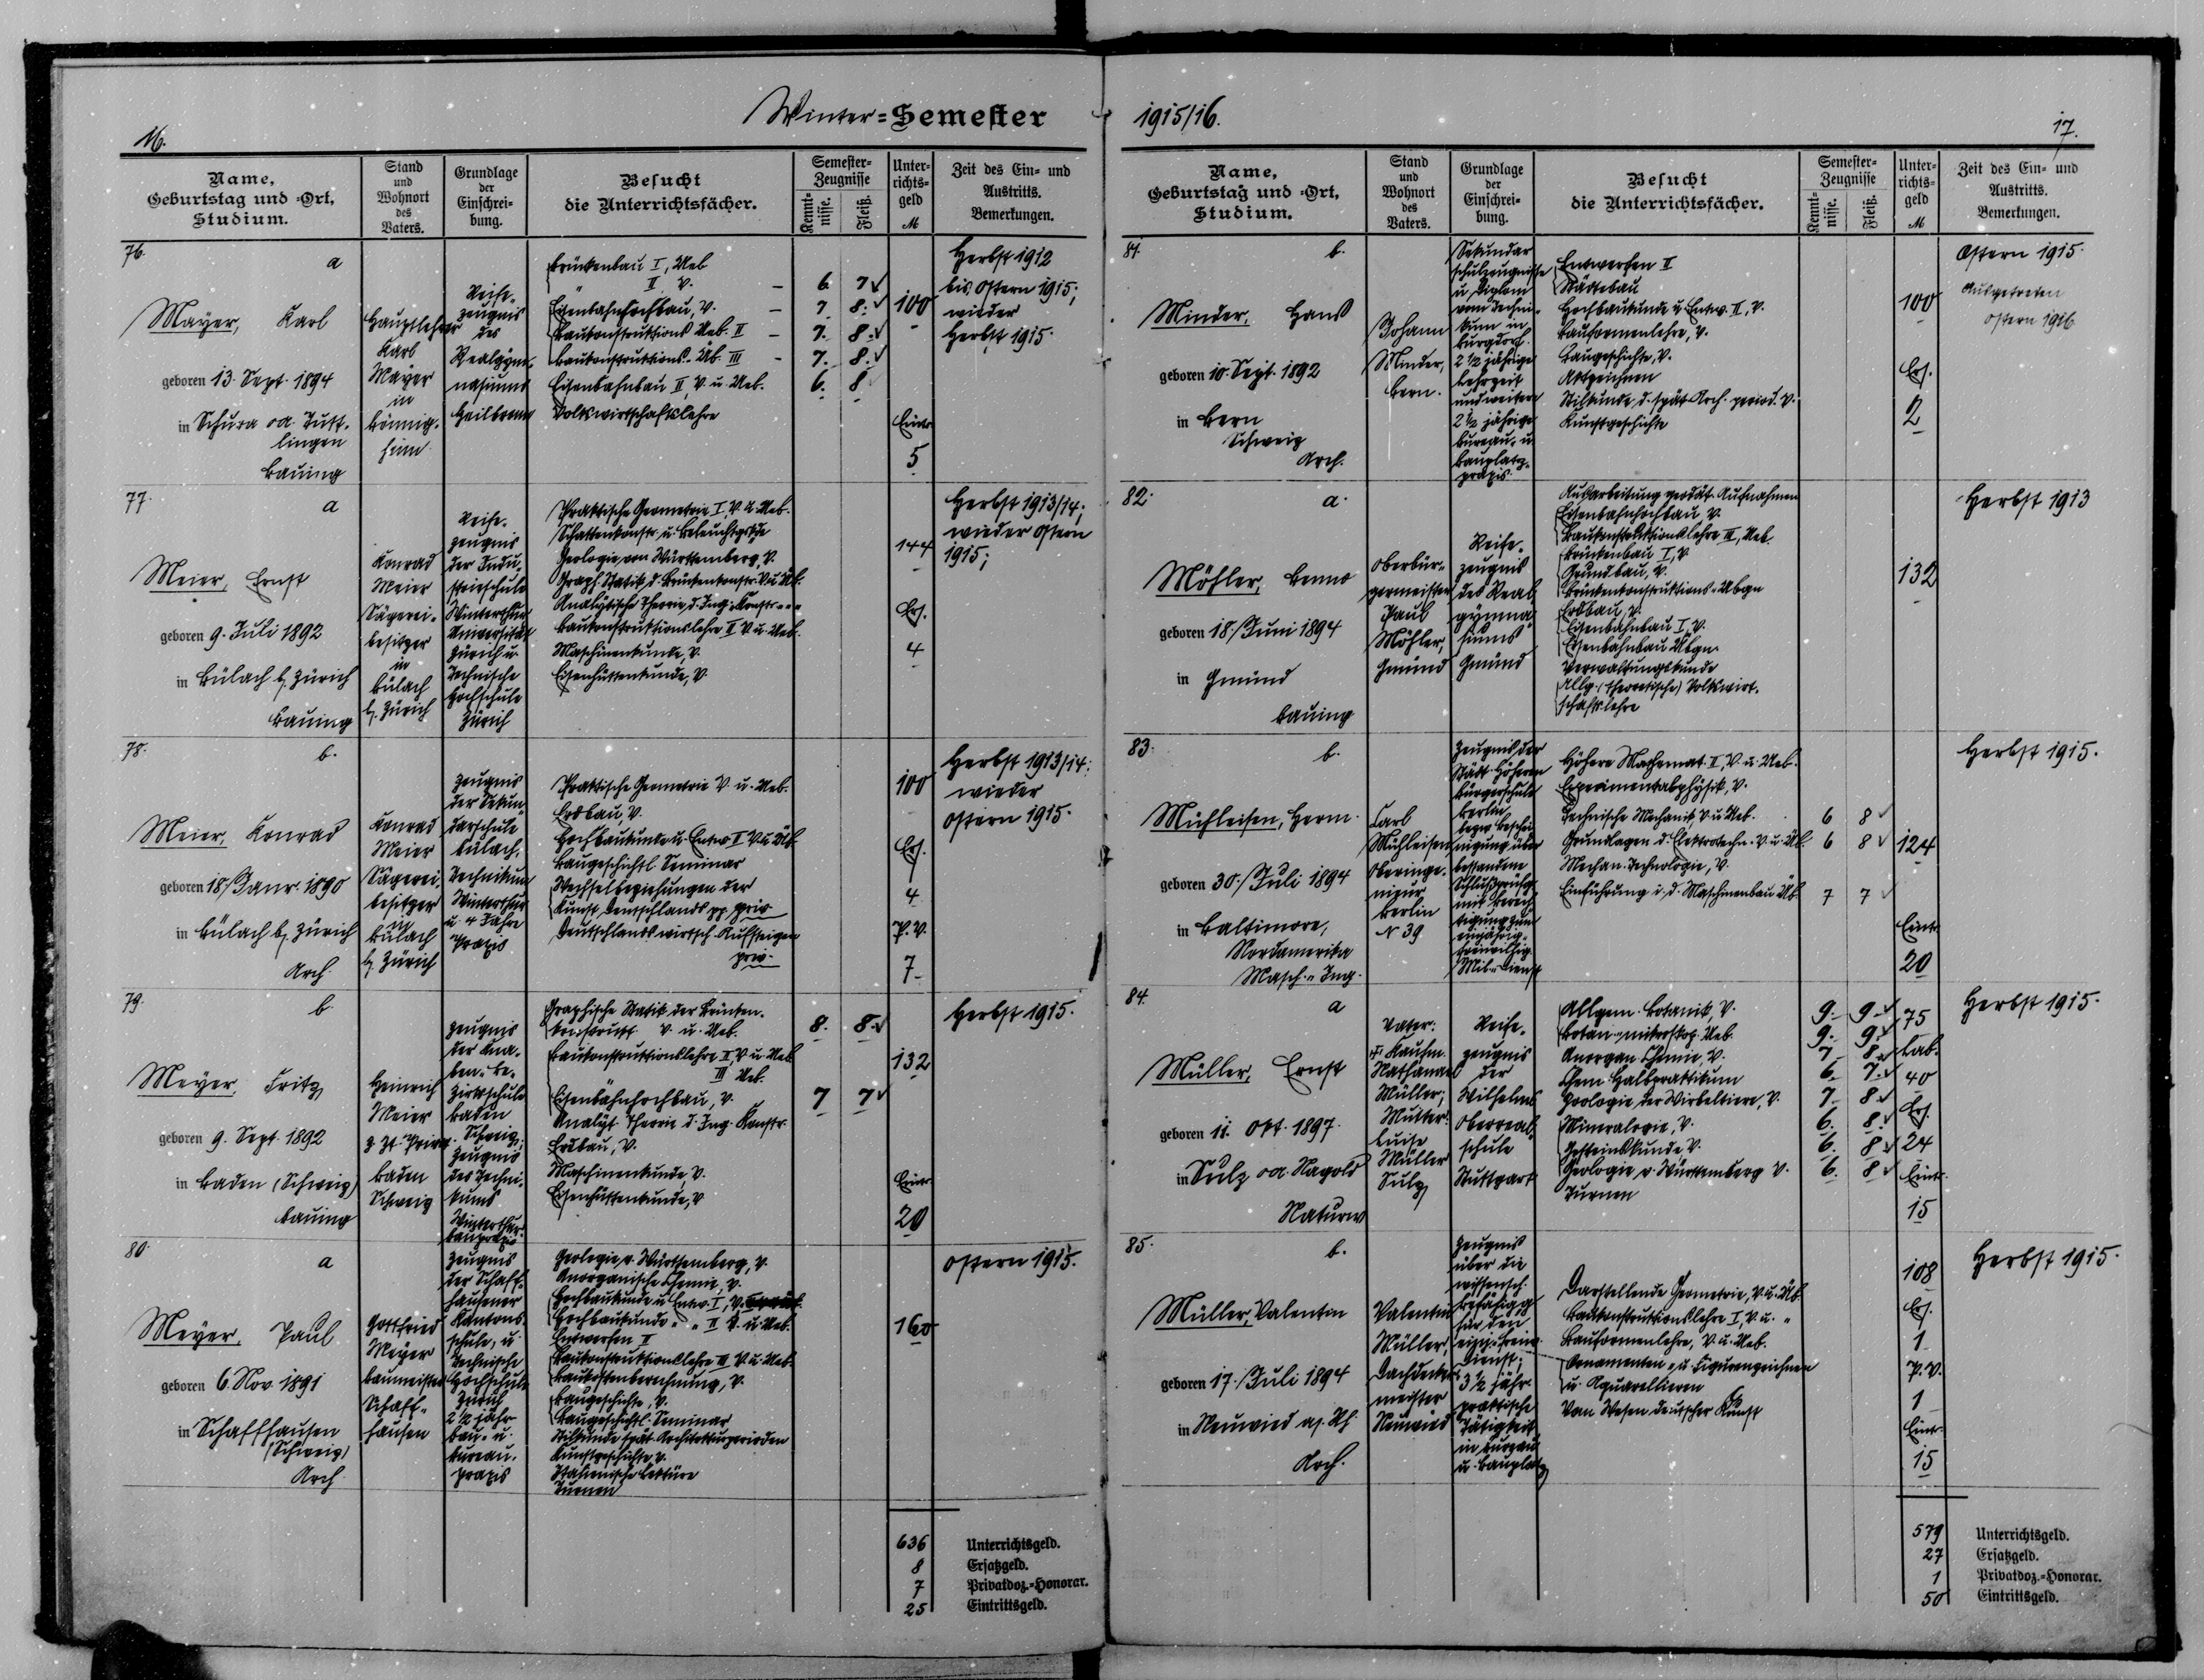 Winter-Semester
16.
Name,
Geburtstag und -Ort,
Studium.
Stand
und
Wohnort
des
Vaters.
Grundlage
der
Einschrei-
bung.
Besucht
die Unterrichtsfächer.
Semester-
Zeugnisse
Kennt-
nisse.
Fleiß.
Unter-
richts-
geld
M
Zeit des Ein- und
Austritts.
Bemerkungen.
76.
a
Mayer, Karl
geboren 13. Sept. 1894
in Schura OA. Tutt-
lingen
Bauing
Hauptlehrer
Karl
Mayer
in
Bönnig-
heim
Reife-
zeugnis
des
Realgym-
nasiums
Heilbronn
Brückenbau I, Ueb
" II V. - 6 7
Eisenbahnhochbau, V. - 7 8.
Baukonstruktions Ueb. II - 7. 8.
Baukonstruktions-Üb. III - 7. 8.
Eisenbahnbau II, V. u. Ueb. 6. 8
Volkswirtschaftslehre
100
Eintr.
5
Herbst 1912
bis Ostern 1915;
wieder
Herbst 1915.
77.
a
Meier, Ernst
geboren 9. Juli 1892
in Bülach b. Zürich
Bauing
Konrad
Meier
Sägerei-
besitzer
in
Bülach
b. Zürich
Reife-
zeugnis
der Indu-
strieschule
Winterthur
Universität
Zürich u.
Technische
Hochschule
Zürich
Praktische Geometrie I, V. u. Ueb.
Schattenkonstr. u. Beleuchtgskde
Geologie von Württemberg, V.
Graph. Statik d. Brückenkonstr. V. u. Üb.
Analytische Theorie d. Ing.-Konstr. " "
Baukonstruktionslehre II V. u. Ueb.
Maschinenkunde, V.
Eisenhüttenkunde, V.
144
Ers.
4
Herbst 1913/14;
wieder Ostern
1915;
78.
b.
Meier, Konrad
geboren 18. Janr. 1890
in Bülach b. Zürich
Arch.
Konrad
Meier
Sägerei-
besitzer
in
Bülach
b. Zürich
Zeugnis
der Sekun-
darschule
Bülach,
Technikum
Winterthur
u. 4 Jahre
Praxis
Praktische Geometrie V. u. Ueb.
Erdbau, V.
Hochbaukunde u. Entw. II V. u. Üb.
Baugeschichtl. Seminar
Wechselbeziehungen der
Kunst Deutschlands pp. priv
Deutschlands wirtsch. Aufsteigen
priv.
100
Ers.
4
P.V.
7
Herbst 1913/14:
wieder
Ostern 1915.
79.
b.
Meyer, Fritz
geboren 9. Sept. 1892
in Baden (Schweiz)
Bauing
Heinrich
Meier
z. Zt. Privat.
Baden
Schweiz
Zeugnis
der Kna-
ben-Be-
zirksschule
Baden
Schweiz;
Zeugnis
des Techni-
kums
Winterthur
Baupraxis
Graphische Statik der Brücken-
konstrukt. V. u. Ueb. 8. 8.
Baukonstruktionslehre II V. u. Ueb
III Ueb.
Eisenbahnhochbau, V. 7 7
Analyt. Theorie d. Ing. Konstr.
Erdbau, V.
Maschinenkunde V.
Eisenhüttenkunde, V
132
Eintr.
20
Herbst 1915.
80.
a
Meyer, Paul
geboren 6. Nov. 1891
in Schaffhausen
(Schweiz)
Arch
Gottfried
Meyer
Baumeister
Schaff-
hausen
Zeugnis
der Schaff-
hausener
Kantons-
schule, u.
Technische
Hochschule
Zürich
2 1/2 jähr
Bau- u.
Bureau-
praxis
Geologie v. Württemberg, V.
Anorganische Chemie, V.
Hochbaukunde u. Entw. I, V.
Hochbaukunde " " II V. u. Ueb.
Entwerfen II
Baukonstruktionslehre III V. u. Ueb.
Baukostenberechnung, V.
Baugeschichte, V.
Baugeschichtl. Seminar
Stilkunde spät. Architekturperioden
Kunstgeschichte V.
Italienische Lektüre
Turnen
160
Ostern 1915.
636 Unterrichtsgeld.
8 Ersatzgeld.
7 Privatdoz.-Honorar.
25 Eintrittsgeld.
1915/16.
17.
Name,
Geburtstag und -Ort,
Studium.
Stand
und
Wohnort
des
Vaters.
Grundlage
der
Einschrei-
bung.
Besucht
die Unterrichtsfächer.
Semester-
Zeugnisse
Kennt-
nisse.
Fleiß.
Unter-
richts-
geld
M
Zeit des Ein- und
Austritts.
Bemerkungen.
81.
b.
Minder, Hans
geboren 10. Sept. 1892
in Bern
Schweiz
Arch.
Johann
Minder,
Bern.
Sekundar
schulzeugnisse
u. Diplom
vom Techni-
kum in
Burgdorf.
2 1/2 jährige
Lehrzeit
und weitere
2 1/2 jährige
Bureau- u.
Bauplatz-
praxis
Entwerfen II
Städtebau
Hochbaukunde u. Entw. II, V.
Bauformenlehre, V.
Baugeschichte, V.
Aktzeichnen
Stilkunde d. spät. Arch. period. V.
Kunstgeschichte
100
Ers.
2
Ostern 1915.
Ausgetreten
Ostern 1916
82.
a.
Möhler, Benno
geboren 18. Juni 1894
in Gmünd
Bauing
Oberbür-
germeister
Paul
Möhler,
Gmünd
Reife-
zeugnis
des Real
gymna-
siums
Gmünd
Ausarbeitung geodät. Aufnahmen
Eisenbahnhochbau V.
Baukonstruktionslehre III, Ueb.
Brückenbau I, V
Grundbau, V.
Brückenkonstruktions-Übgn
Erdbau, V.
Eisenbahnbau I, V.
Eisenbahnbau Übgn.
Verwaltungskunde
Allg. (theoretische) Volkswirt-
schaftslehre
132
Herbst 1913
83.
b.
Mühleisen, Herm.
geboren 30. Juli 1894
in Baltimore,
Nordamerika
Masch.-Ing.
Carl
Mühleisen
Oberinge-
nieur
Berlin
N 39
Zeugnis der
Städt. höheren
Bürgerschule
Berlin
bezw. Beschei-
nigung über
bestandene
Schlußprüfg.
mit Berech-
tigung zum
einjährig-
freiwillig.
Mil.-Dienst
Höhere Mathemat. II, V. u. Ueb.
Experimentalphysik, V.
Technische Mechanik V. u. Ueb. 6 8
Grundlagen d. Elektrotechn. V. u. Üb. 6 8
Mechan. Technologie, V.
Einführung i. d. Maschinenbau Üb. 7 7
124
Eintr.
20
Herbst 1915.
84.
a
Müller, Ernst
geboren 11. Okt. 1897.
in Sulz OA. Nagold
Naturw
Vater:
Kaufm.
Nathanael
Müller;
Mutter:
Luise
Müller
Sulz
Reife-
zeugnis
der
Wilhelms
Oberreal-
schule
Stuttgart
Allgem. Botanik, V. 9. 9.
Botan.-mikroskop. Ueb. 9. 9.
Anorgan. Chemie, V. 7 8.
Chem. Halbpraktikum 6. 7.
Zoologie der Wirbeltiere, V. 7. 8.
Mineralogie, V. 6. 8.
Gesteinskunde, V. 6. 8.
Geologie v. Württemberg V. 6. 8
Turnen
75
Lab.
40
Ers.
24
Eintr.
15
Herbst 1915.
85.
b.
Müller, Valentin
geboren 17. Juli 1894
in Neuwied a/Rh.
Arch.
Valentin
Müller,
Dachdecker-
meister
Neuwied
Zeugnis
über die
wissensch.
Befähigg
für den
einj.-freiw.
Dienst;
3 1/2 jähr.
praktische
Tätigkeit
in Bureau
u. Bauplatz
Darstellende Geometrie, V. u. Üb.
Baukonstruktionslehre I, V. u. "
Bauformenlehre, V. u. Ueb.
Ornamenten- u. Figurenzeichnen
u. Aquarellieren
Vom Wesen deutscher Kunst
108
Ers.
1
P.V.
1
Eintr.
15
Herbst 1915.
579 Unterrichtsgeld.
27 Ersatzgeld.
1 Privatdoz.-Honorar.
50 Eintrittsgeld.